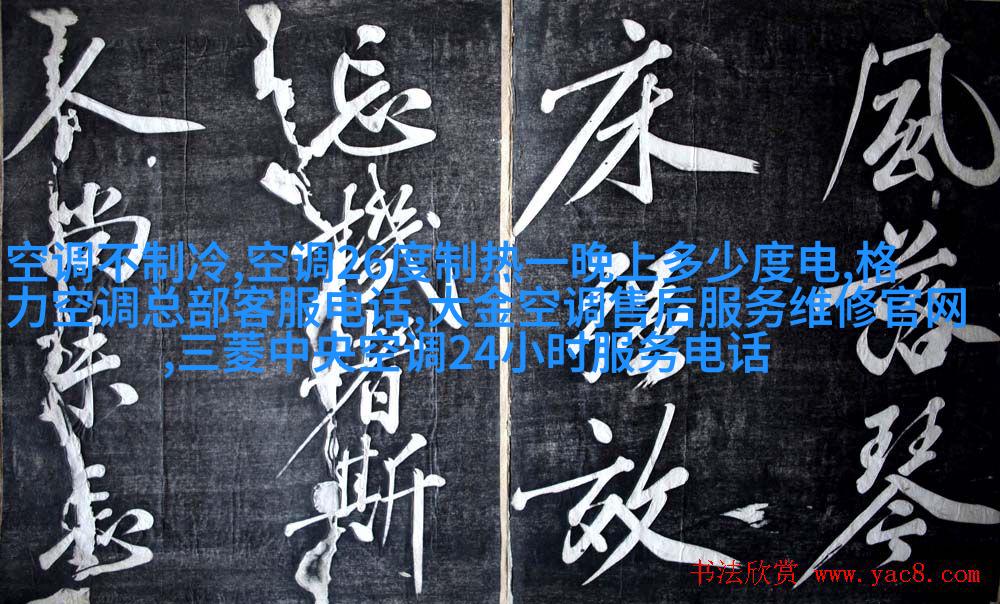 風落琴
床
忘機者斯
尚
空调不制冷,空调26度制热一晚上多少度电,格
力空调总部客服电话,大金空调售后服务维修官网
,三菱中央空调24小时服务电话
书法欣赏 www.yac8.com